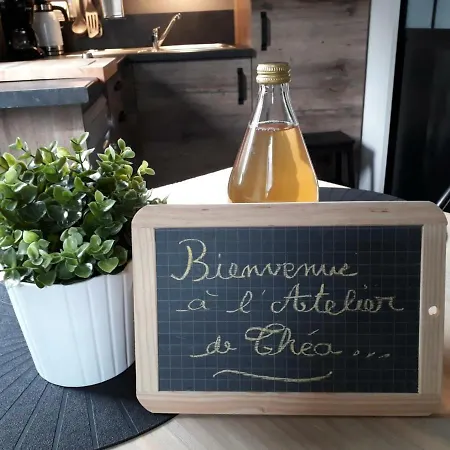 Bienvenue
à l'Atelier
de Théa...